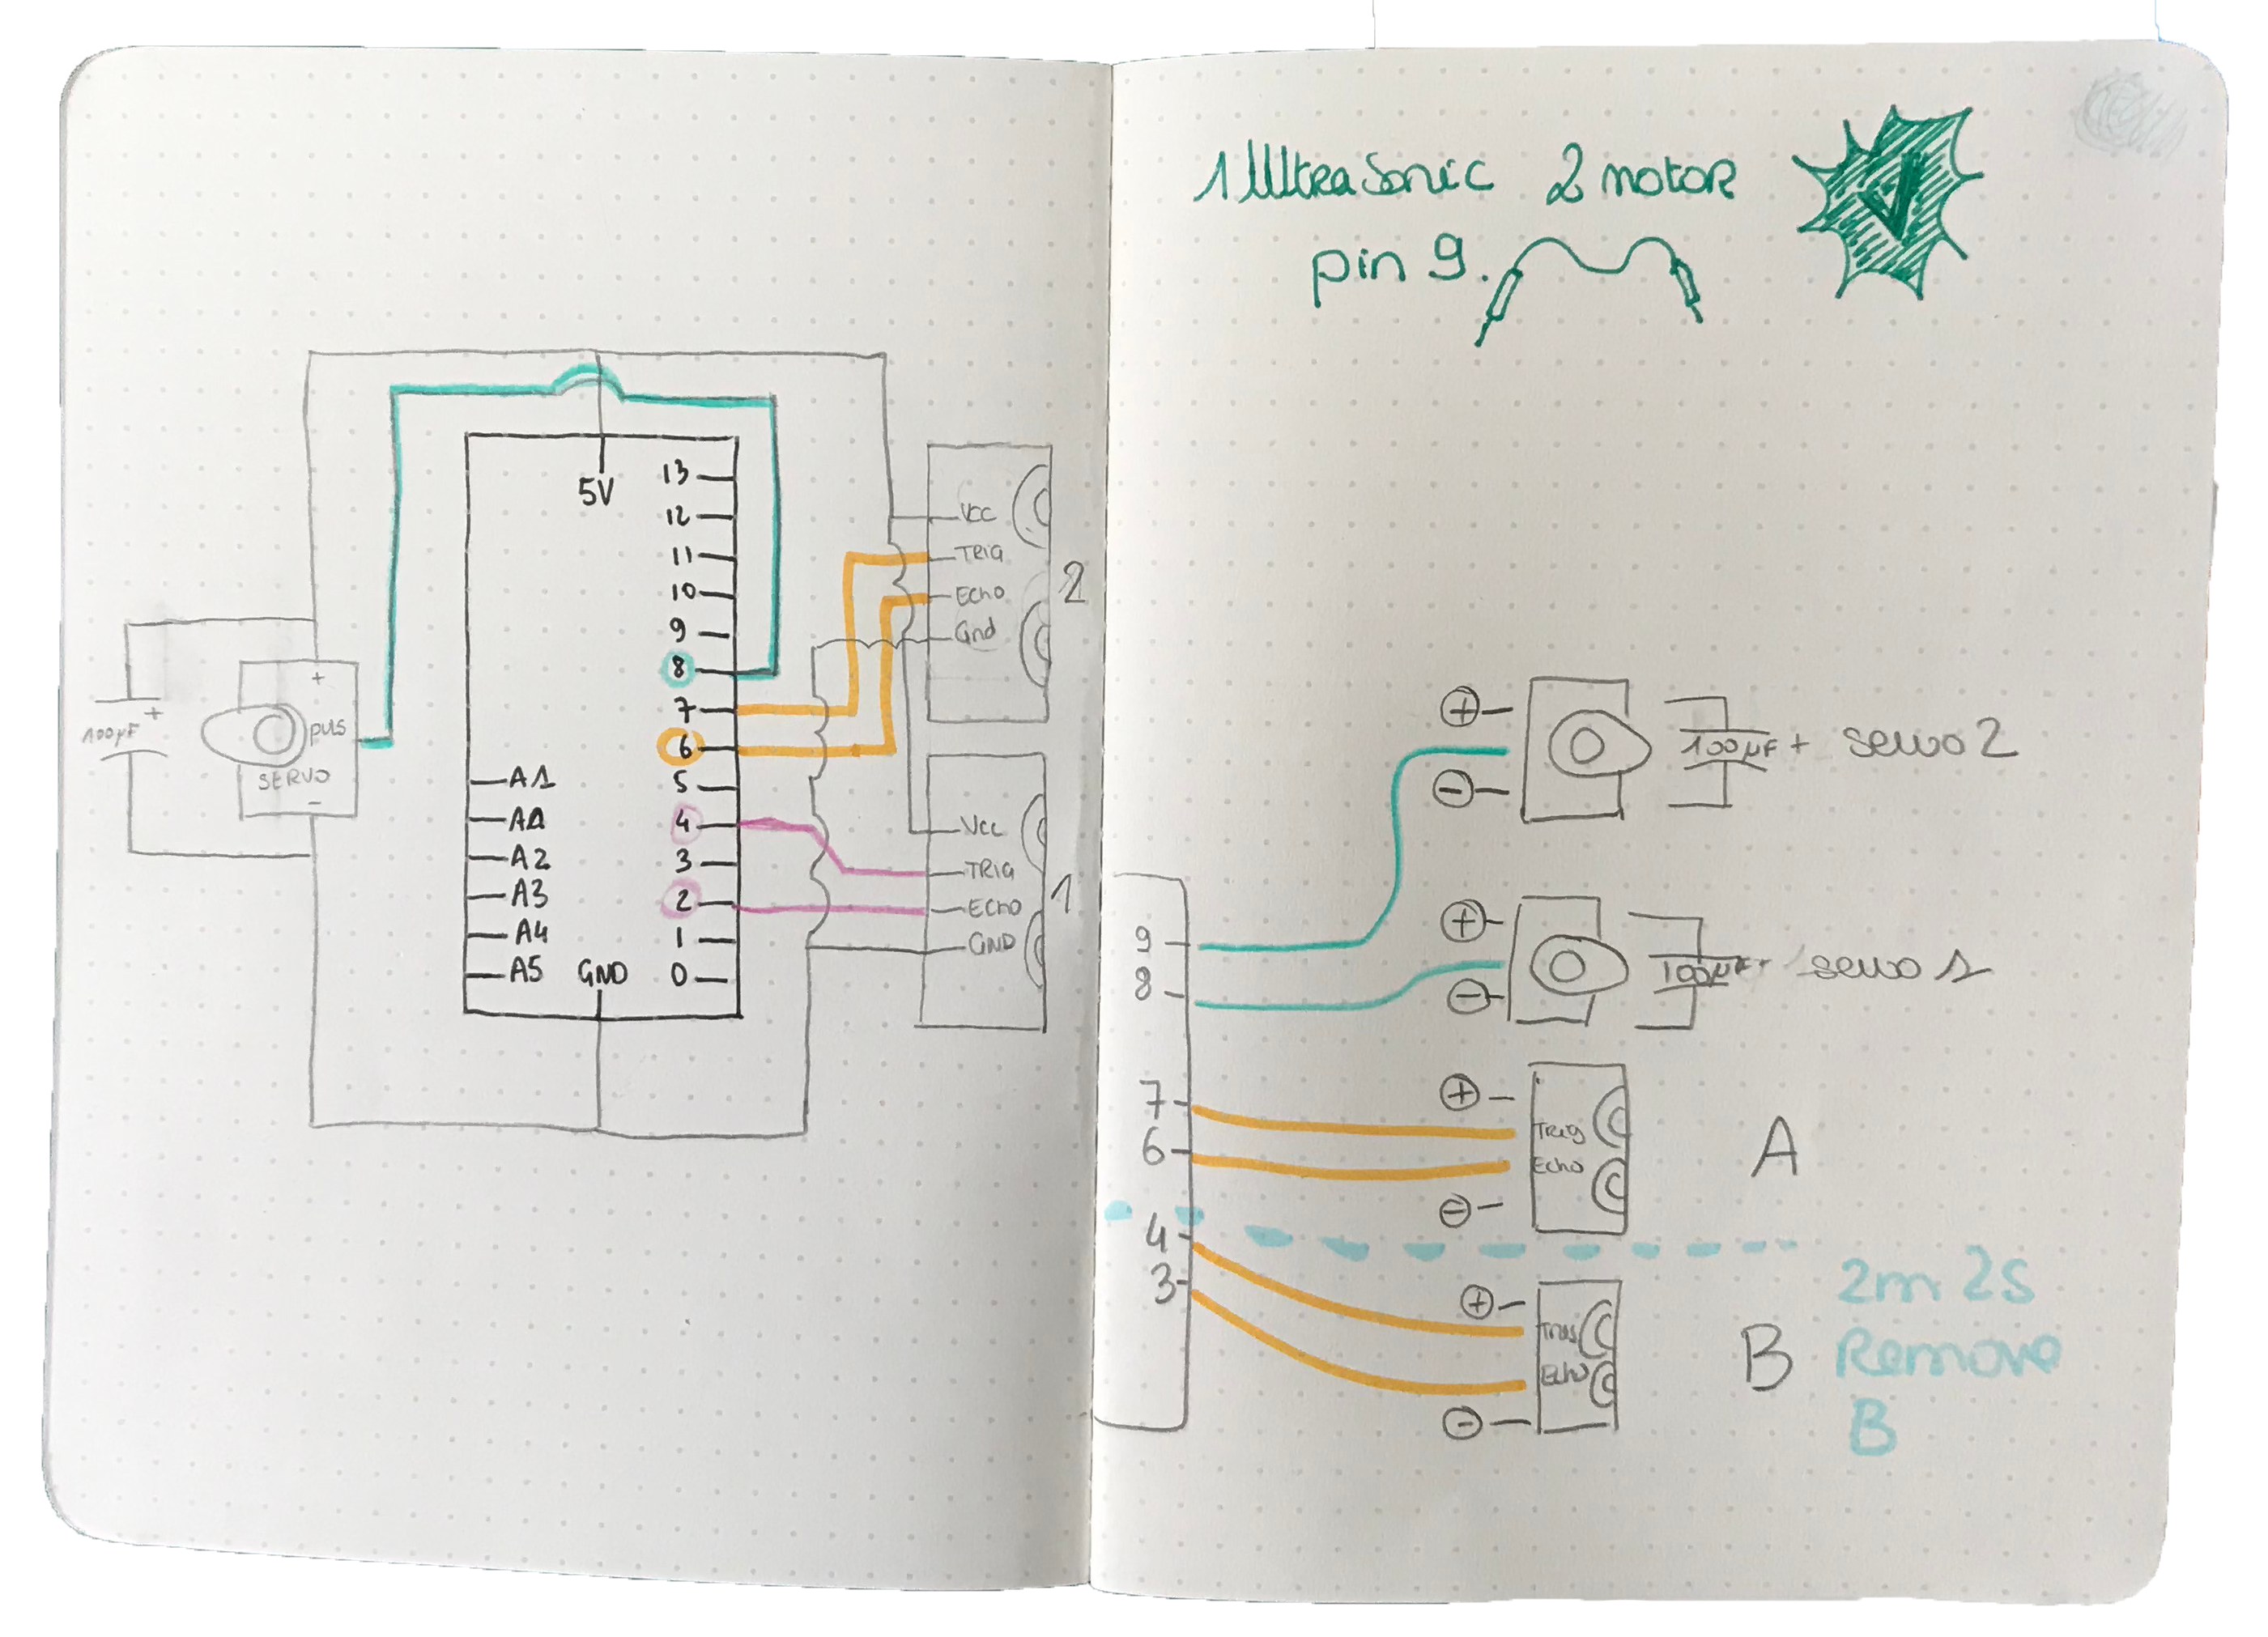 5V
13
12
11
10
9
8
7
6
5
4
3
2
1
0
A1
A0
A2
A3
A4
A5
GND
+
100µF
+
puls
SERVO
-
Vcc
TRIG
Echo
Gnd
2
Vcc
TRIG
Echo
GND
1
1 UltraSonic 2 motor
pin 9.
+
100µF + servo 2
-
+
100µF + servo 1
-
9
8
7
6
4
3
+
Trig
Echo
-
A
+
Echo
-
B
2m 2s
Remove
B